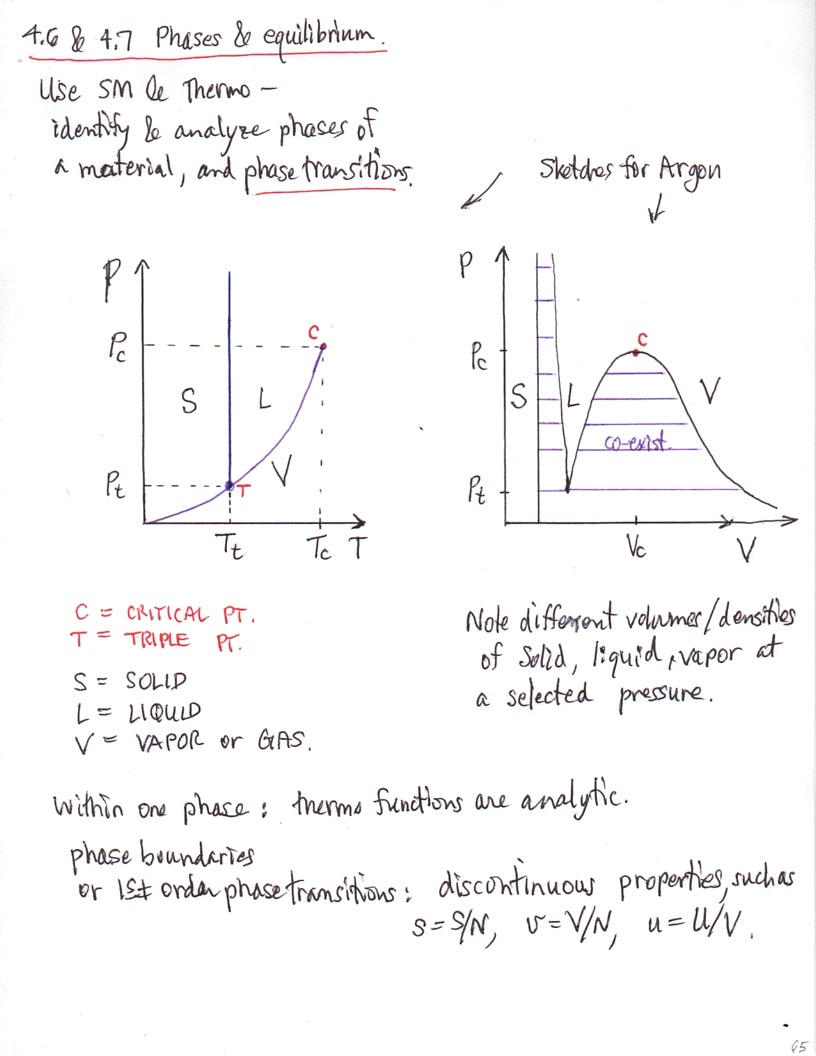 4.6 & 4.7 Phases & equilibrium.
Use SM & Thermo –
identify & analyze phases of
a material, and phase transitions.
Sketches for Argon
P
Pc
Pt
S
L
V
C
T
Tt
Tc
T
P
Pc
Pt
S
L
V
C
co-exist.
Vc
V
C = CRITICAL PT.
T = TRIPLE PT.
S = SOLID
L = LIQUID
V = VAPOR or GAS.
Note different volumes/densities
of solid, liquid, vapor at
a selected pressure.
Within one phase : thermo functions are analytic.
phase boundaries
or 1st order phase transitions : discontinuous properties, such as
s = S/N, v = V/N, u = U/V.
65